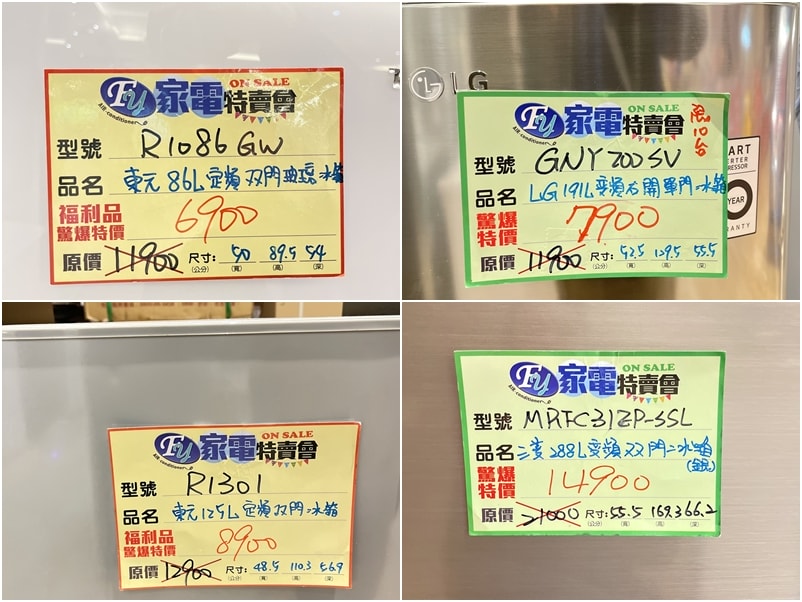 FY 家電特賣會 ON SALE
AIR-conditioner
型號 R1086GW
品名 東元86L定頻双門玻璃冰箱
福利品
驚爆特價 6900
原價 11900 尺寸: 50 89.5 54
(公分) (寬) (高) (深)
LG
FY 家電特賣會 ON SALE
AIR-conditioner
限10台
型號 GNY200SV
品名 LG191L變頻右開單門冰箱
驚爆
特價 7900
原價 11900 尺寸: 52.5 139.5 55.5
(公分) (寬) (高) (深)
YEAR
FY 家電特賣會 ON SALE
AIR-conditioner
型號 R1301
品名 東元125L定頻双門冰箱
福利品
驚爆特價 8900
原價 12900 尺寸: 48.5 110.3 56.9
(公分) (寬) (高) (深)
FY 家電特賣會 ON SALE
AIR-conditioner
型號 MRFC31EP-SSL
品名 三菱288L變頻双門冰箱
(銀)
驚爆
特價 14900
原價 21000 尺寸: 55.5 169.3 66.2
(公分) (寬) (高) (深)